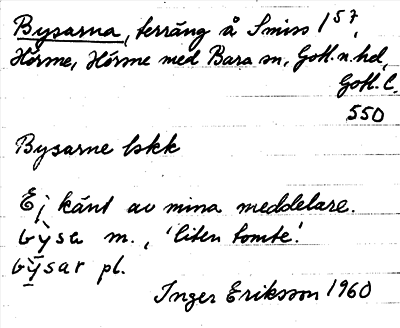 Bysarna, terräng å Smiss 1⁵⁷,
Hörsne, Hörsne med Bara sn, Gotl. n. hd,
Gotl. l.
550
Bysarne bskk
Ej känt av mina meddelare.
bȳ̀sa m., 'liten tomte'.
bȳ̀sar pl.
Inger Eriksson 1960